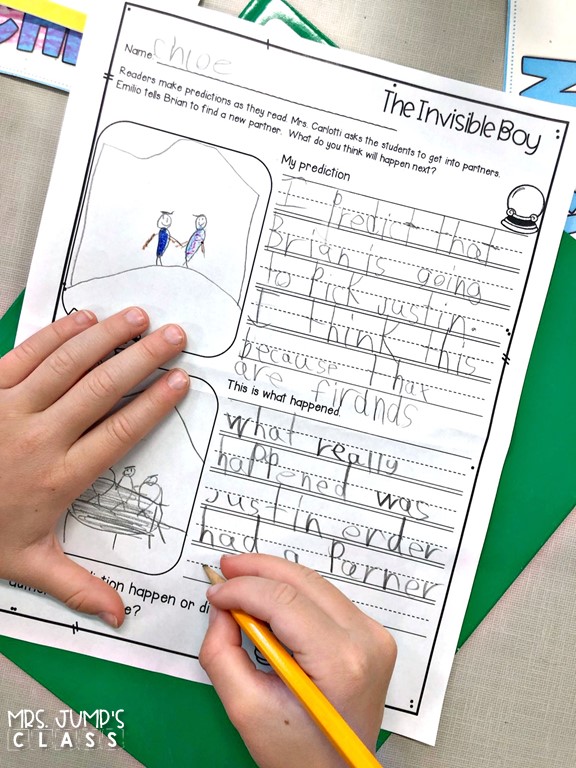 Name: chloe
The Invisible Boy
Readers make predictions as they read. Mrs. Carlotti asks the students to get into partners.
Emilio tells Brian to find a new partner. What do you think will happen next?
My prediction
I predict that
Brian is going
to pick justin.
I think this
because Thay
are firdnds
This is what happened.
what really
happened was
justin erder
had a Parner
happen or di
MRS. JUMP'S
CLASS